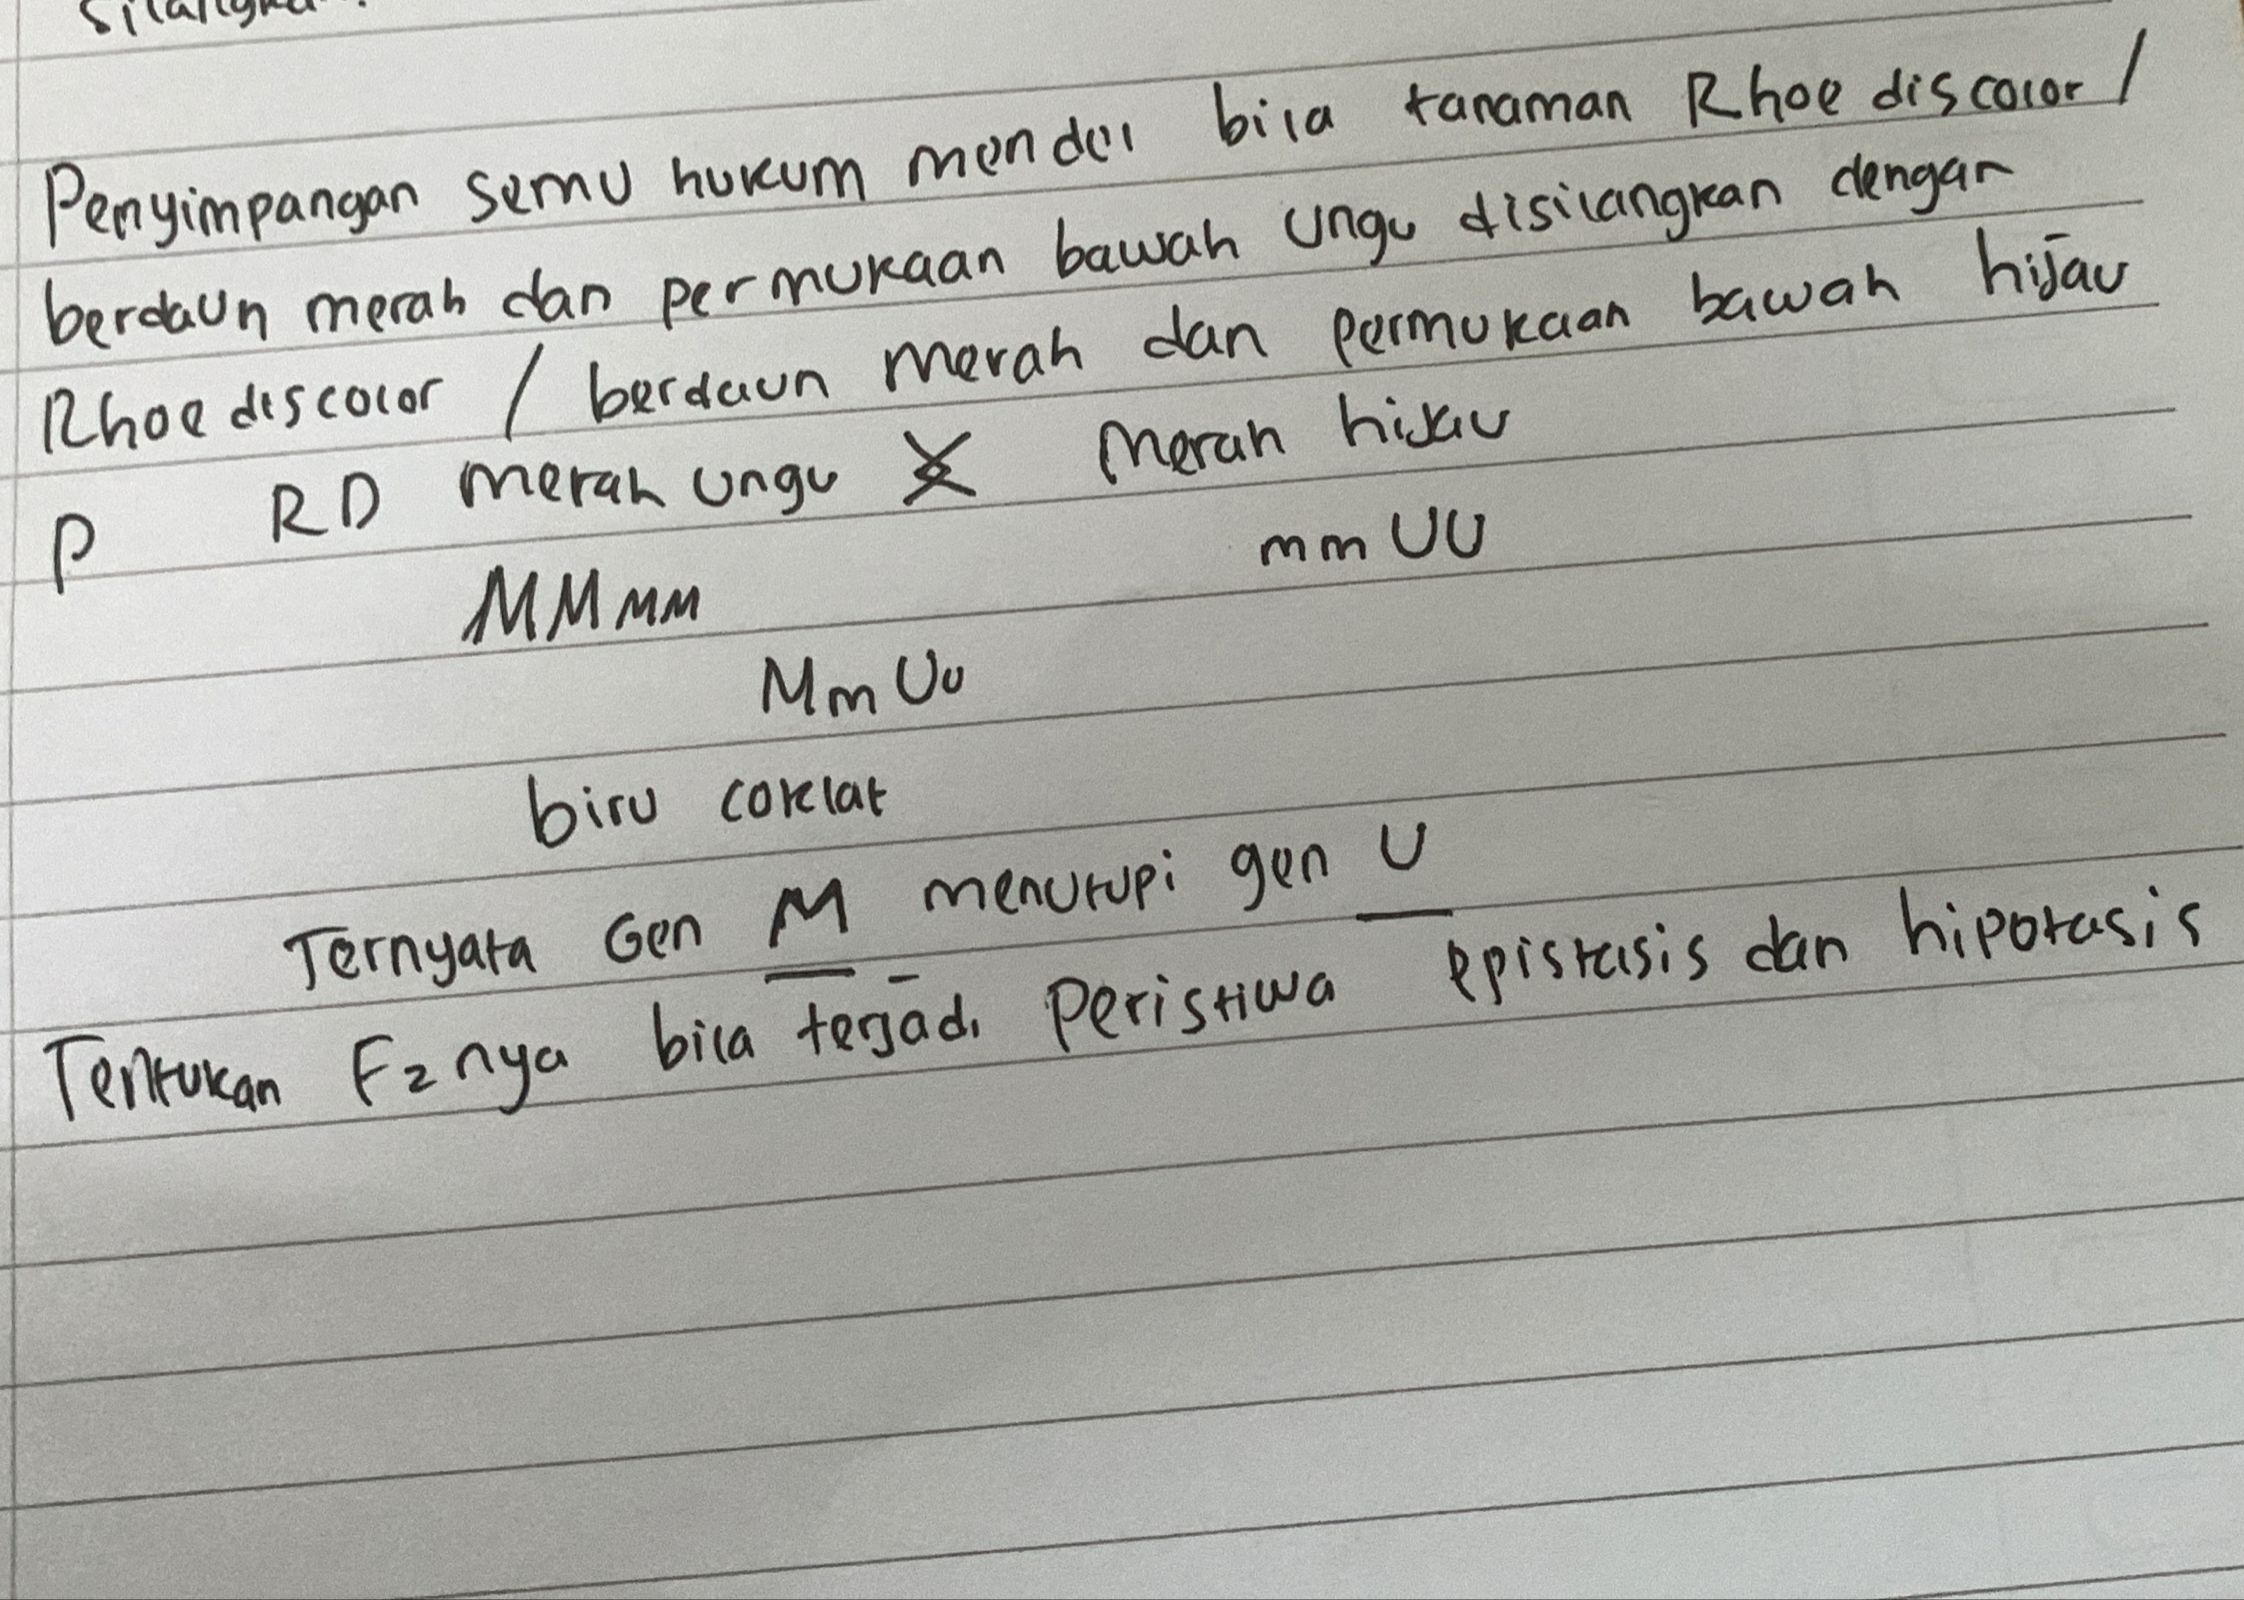 Penyimpangan semu hukum mendel bila tanaman Rhoe discolor /
berdaun merah dan permukaan bawah ungu disilangkan dengan
Rhoe discolor / berdaun merah dan permukaan bawah hijau
P RD merah ungu X merah hijau
MMMM mmUU
MmUu
biru coklat
Ternyata Gen M menutupi gen U
Tentukan F2nya bila terjadi Peristiwa epistasis dan hipotasis